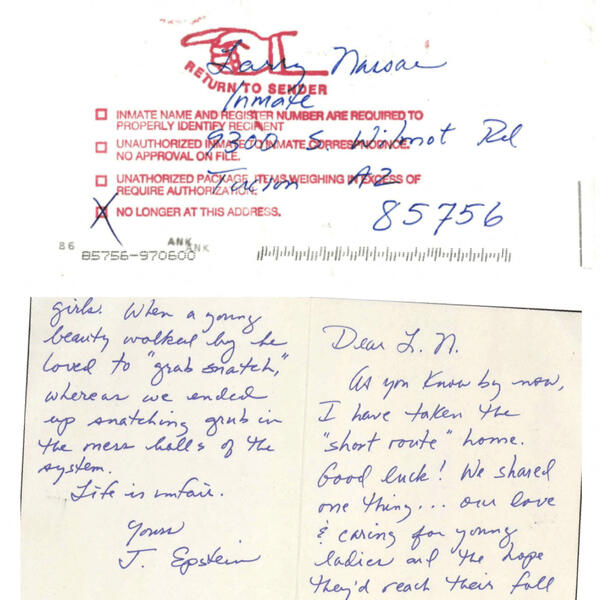 Larry Nassar
RETURN TO SENDER
Inmate
INMATE NAME AND REGISTER NUMBER ARE REQUIRED TO
PROPERLY IDENTIFY RECIPIENT
9300 S Wilmot Rd
UNAUTHORIZED INMATE TO INMATE CORRESPONDENCE.
NO APPROVAL ON FILE.
Tucson AZ
UNATHORIZED PACKAGE ITEMS WEIGHING IN EXCESS OF
REQUIRE AUTHORIZATION.
85756
X NO LONGER AT THIS ADDRESS.
86
ANK
ANK
85756-970600
girls. When a young
beauty walked by he
loved to "grab snatch,"
whereas we ended
up snatching grub in
the mess halls of the
system.
Life is unfair.
Yours
J. Epstein
Dear L. N.
As you know by now,
I have taken the
"short route" home.
Good luck! We shared
one thing... our love
& caring for young
ladies and the hope
they'd reach their full